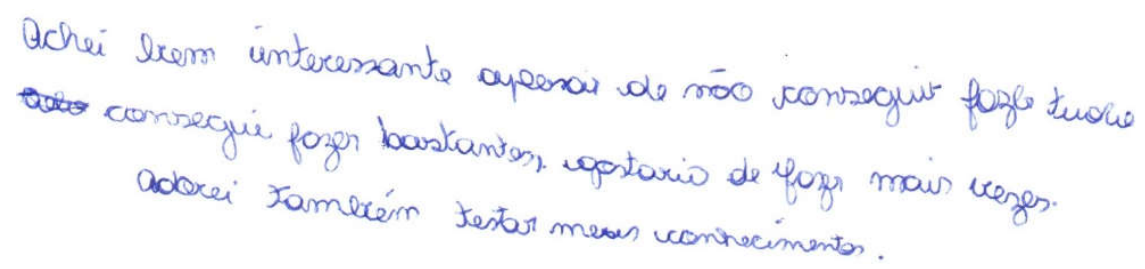 Achei bem interessante apesar de não conseguir faze tudo
consegui fazer bastantes, gostaria de fazer mais vezes.
Adorei também testar meus conhecimentos.